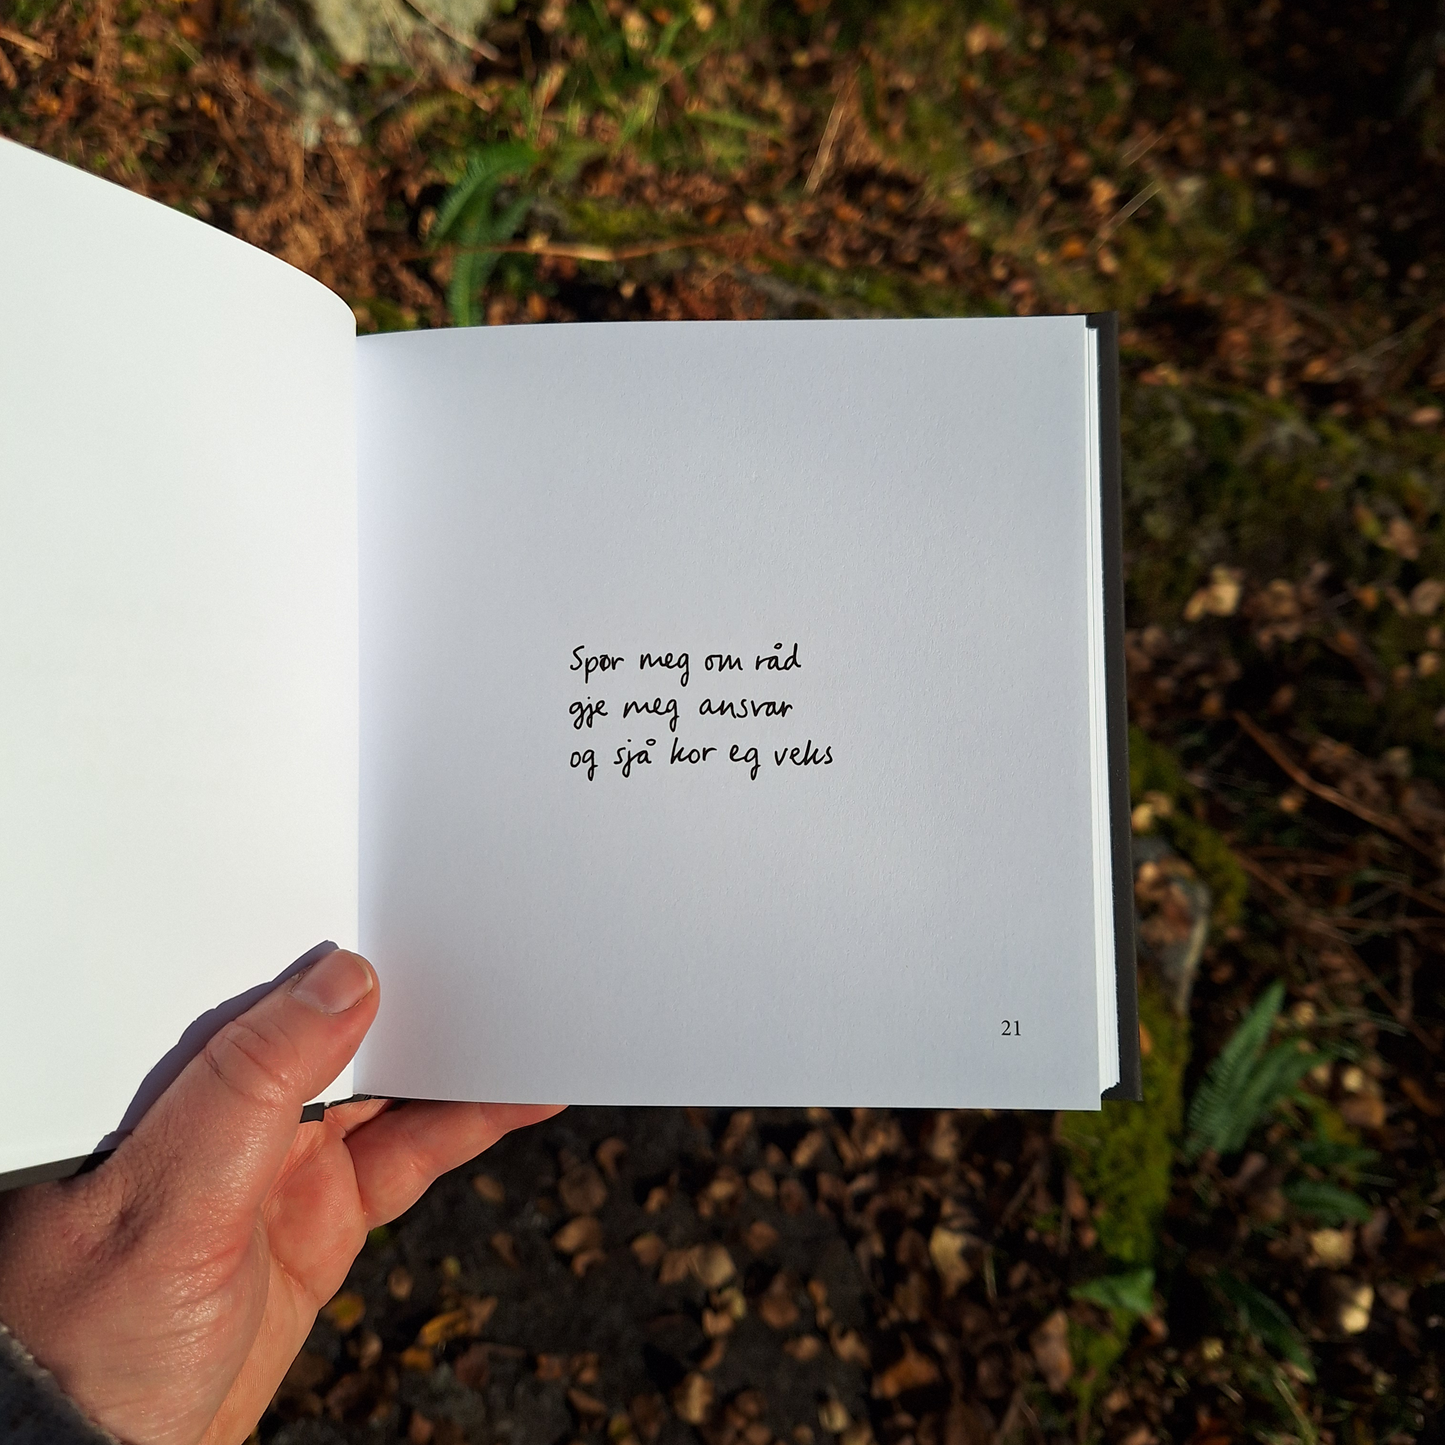 Spør meg om råd
gje meg ansvar
og sjå kor eg veks
21